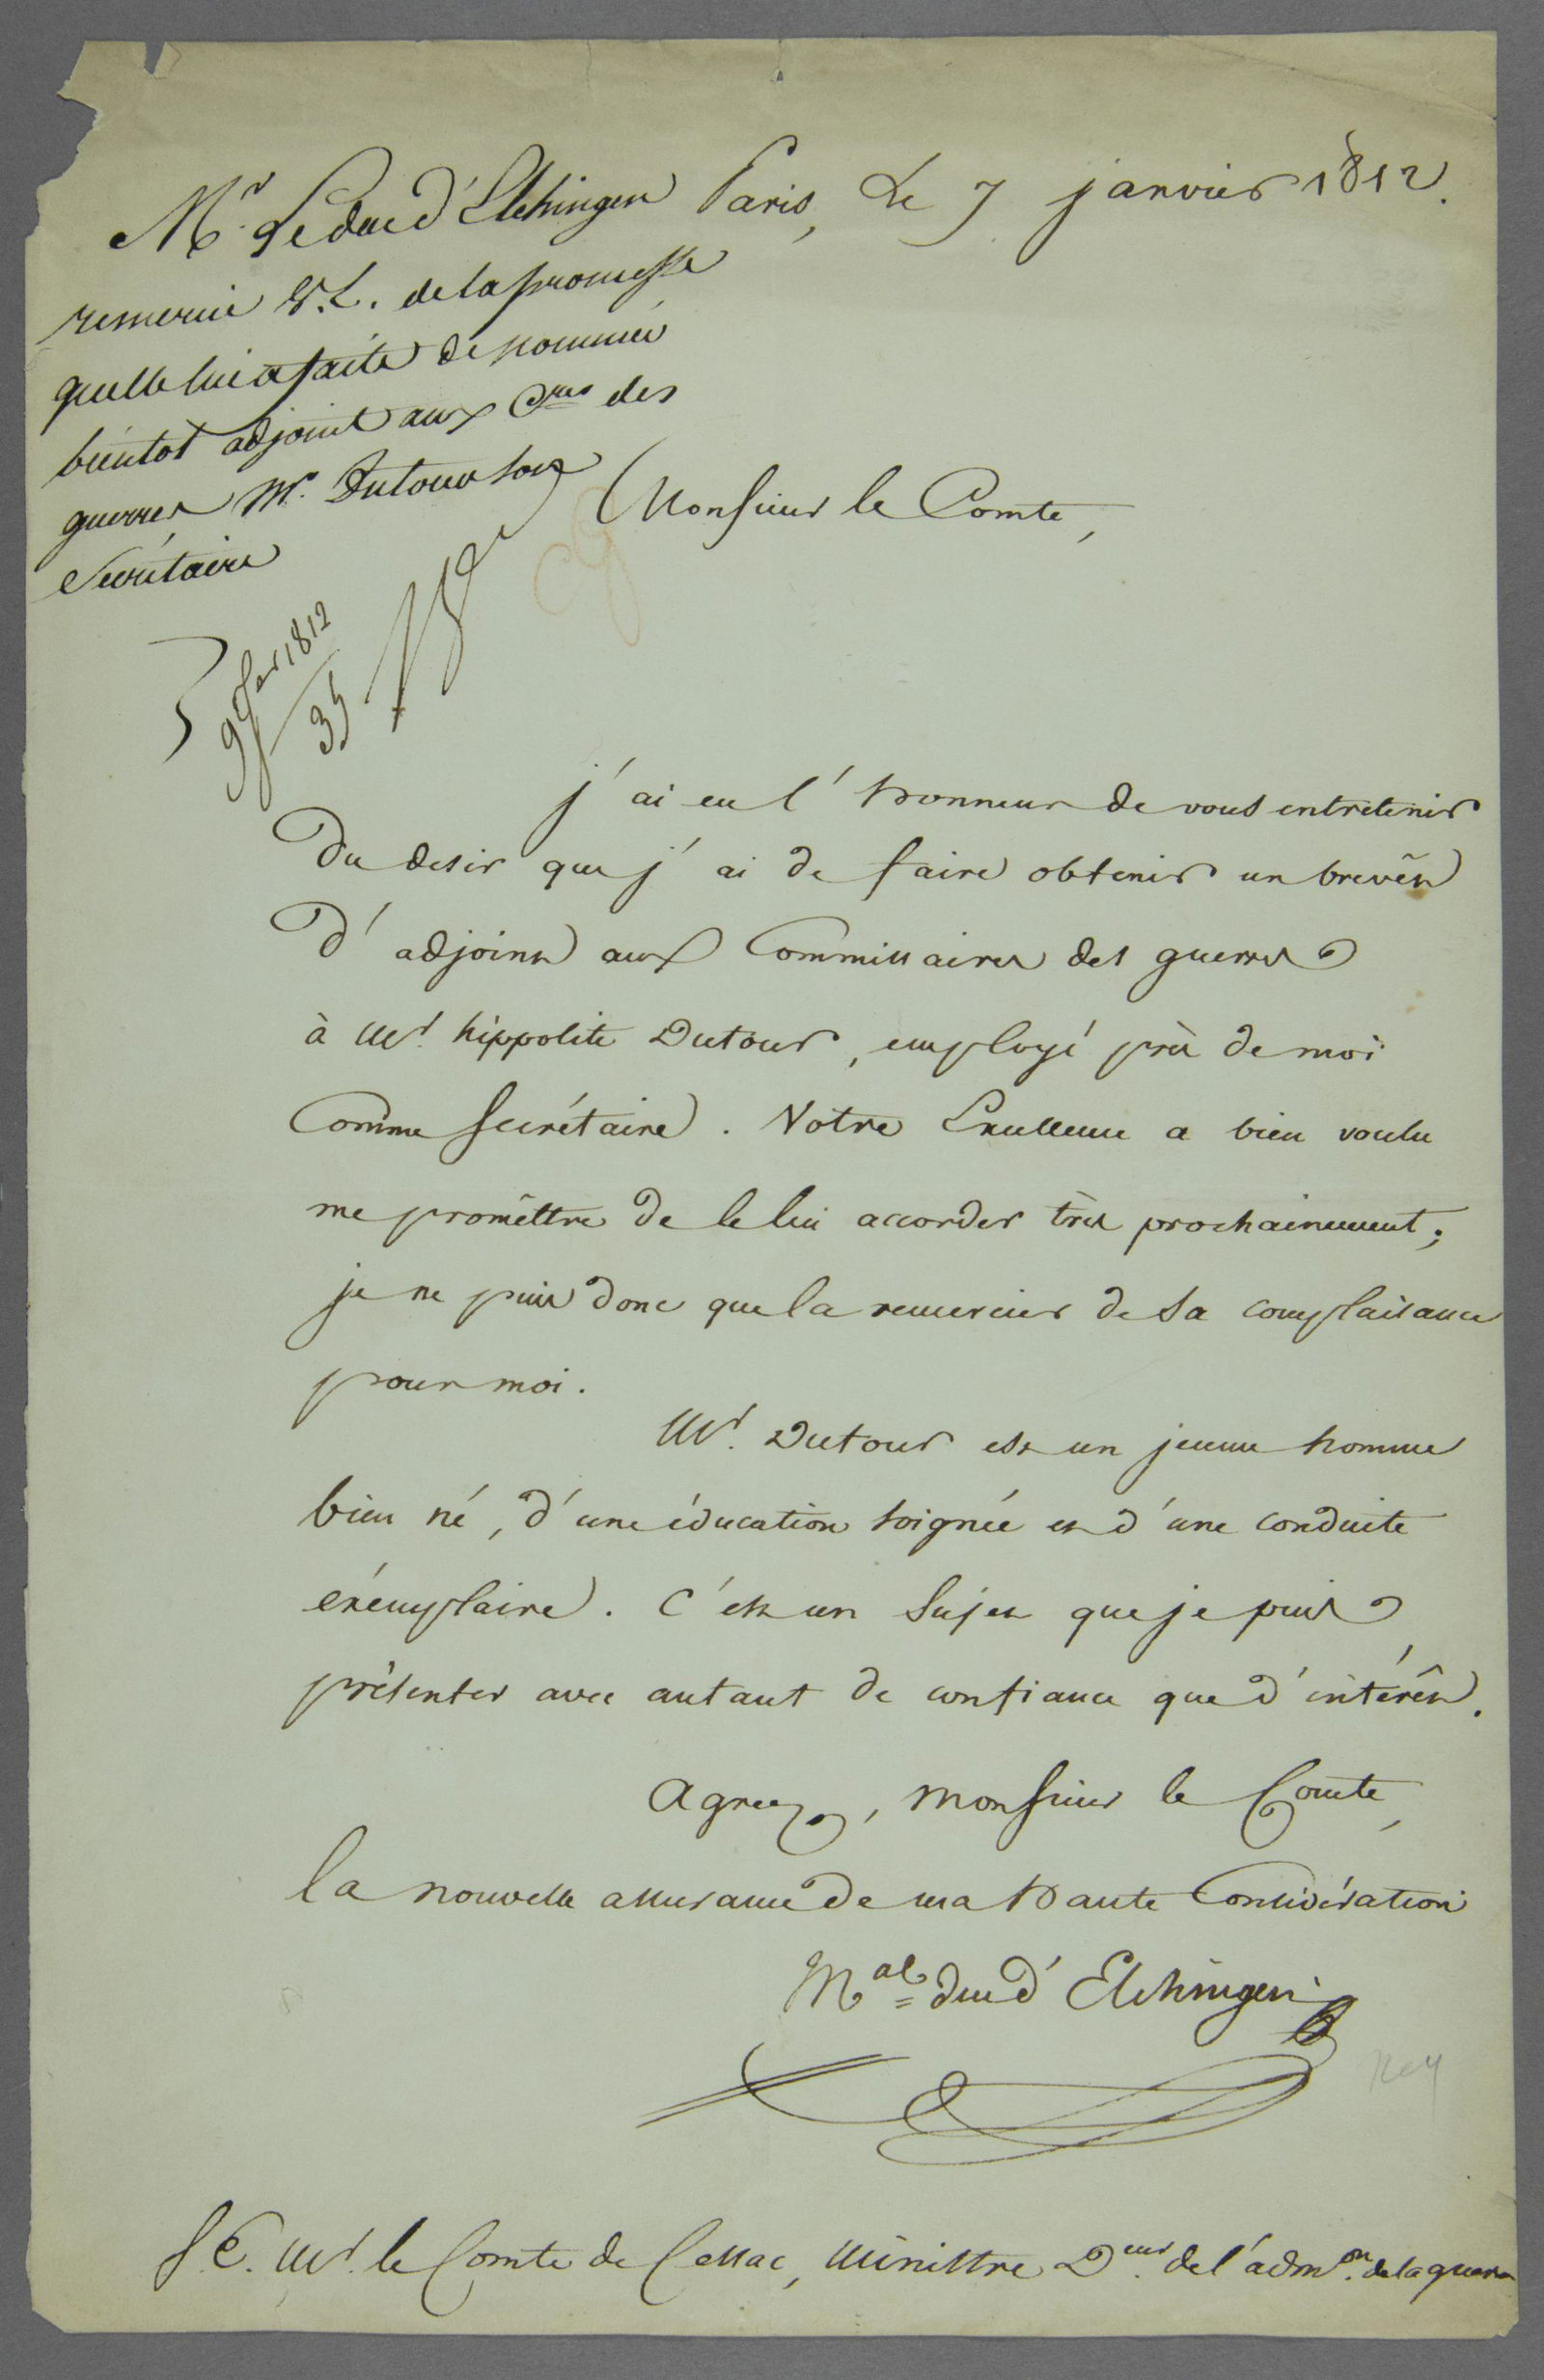 Paris, Le 7 janvier 1812.
Mr. Le duc d'Elchingen
remercie V.E. de la promesse
qu'elle lui a faite de nommer
bientot adjoint aux Cres des
guerres Mr. Dutour son
Secrétaire
9 Jer 1812
35
Monsieur le Comte,
j'ai eu l'honneur de vous entretenir
Du desir que j'ai de faire obtenir un brevêt
D'adjoint aux Commissaires des guerres
à Mr. hippolite Dutour, employé près de moi
Comme Secrétaire. Votre Excellence a bien voulu
me promêttre de le lui accorder très prochainement;
je ne puis donc que la remercier de sa complaisance
pour moi.
Mr. Dutour est un jeune homme
bien né, d'une éducation soignée et d'une conduite
exémplaire. C'est un Sujet que je puis
présenter avec autant de confiance que d'intérêt.
Agreez, Monsieur le Comte,
la nouvelle assurance de ma haute Considération
Mal duc d'Elchingen
Ney
S.E. Mr. le Comte de Cessac, Ministre Deur. de l'admon. de la guerre